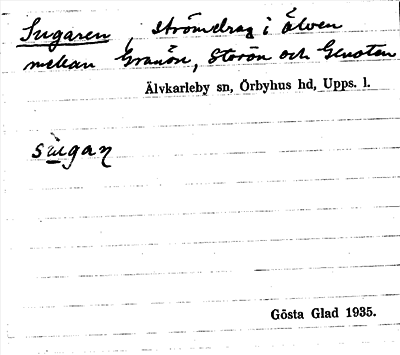 Sugaren, strömdrag i älven
mellan Granön, Storön och
Älvkarleby sn, Örbyhus hd, Upps. l.
Gösta Glad 1935.